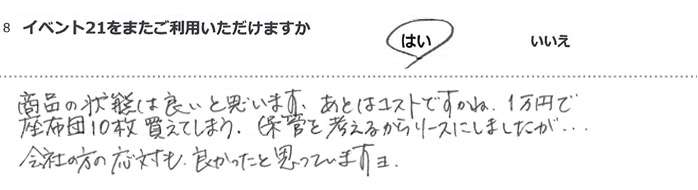 8 イベント21をまたご利用いただけますか
はい いいえ
商品の状態は良いと思います、あとはコストですかね、1万円で
座布団10枚買えてしまう、(保管を考えるからリースにしましたが・・・
会社の方の応対も、良かったと思っていますヨ.